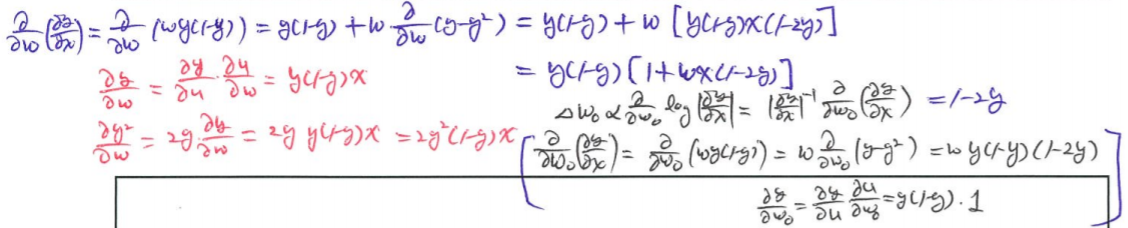 ∂/∂w (∂y/∂x) = ∂/∂w (wy(1-y)) = y(1-y) + w ∂/∂w (y-y²) = y(1-y) + w [y(1-y)x(1-2y)]
= y(1-y) [1+wx(1-2y)]
∂y/∂w = ∂y/∂u · ∂u/∂w = y(1-y)x
Δw₀ ∝ ∂/∂w₀ log |∂y/∂x| = |∂y/∂x|⁻¹ ∂/∂w₀ (∂y/∂x) = 1-2y
∂y²/∂w = 2y · ∂y/∂w = 2y y(1-y)x = 2y²(1-y)x
[ ∂/∂w₀ (∂y/∂x) = ∂/∂w₀ (wy(1-y)) = w ∂/∂w₀ (y-y²) = w y(1-y)(1-2y)
∂y/∂w₀ = ∂y/∂u ∂u/∂w₀ = y(1-y) · 1 ]